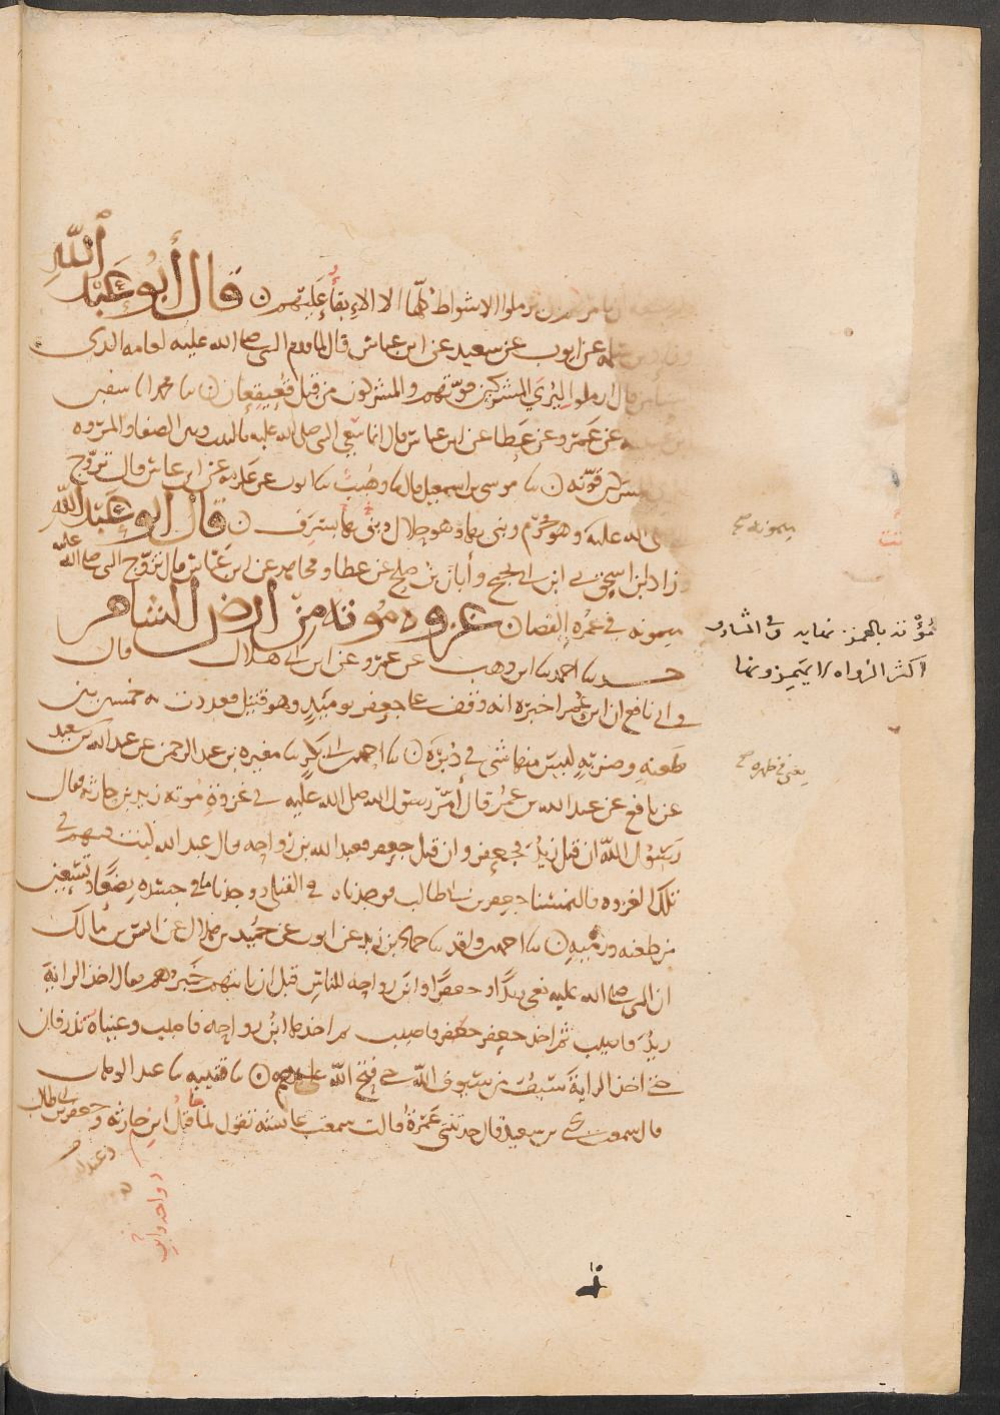 ان يامرهم ان يرملوا الاشواط كلها الا الابقا عليهم ن قال أبو عبد الله
وزاد ابن سلمة عن ايوب عن سعيد عن ابن عباس قال لما قدم النبي صلى الله عليه لعامه الذي
استأمن قال ارملوا ليري المشركين قوتهم والمشركون من قبل قعيقعان ن نا محمد انا سفين
ابن عيينة عن عمرو عن عطا عن ابن عباس قال انما سعى النبي صلى الله عليه بالبيت وبين الصفا والمروه
ليري المشركين قوته ن نا موسى بن اسمعيل قال نا وهيب نا ايوب عن عكرمة عن ابن عباس قال تزوج
النبي صلى الله عليه وهو محرم وبنى بها وهو حلال وبنى بها بسرف ن قال ابو عبد الله
وزاد ابن اسحق ني ابن ابي نجيح وأبان بن صلح عن عطا ومجاهد عن ابن عباس قال تزوج النبي صلى الله عليه
ميمونه في عمرة القضا ن غزوه موته من ارض الشام
حدثنا احمد نا ابن وهب عن عمرو عن ابن ابي هلال قال
واني نافع ان ابن عمر اخبره انه وقف على جعفر يوميذ وهو قتيل فعددت به خمسين بين
طعنه وضربه ليس منها شي في دبره ن نا احمد بن ابي بكر نا مغيره بن عبد الرحمن عن عبد الله بن سعيد
عن نافع عن عبد الله بن عمر قال أمر رسول الله صلى الله عليه في غزوة موته زيد بن حارثه فقال
رسول الله ان قتل زيد فجعفر وان قتل جعفر فعبد الله بن رواحه قال عبد الله كنت فيهم في
تلك الغزوه فالتمسنا جعفر بن ابي طالب فوجدناه في القتلى ووجدنا ما في جسده بضعا وتسعين
من طعنه ورميه ن نا احمد بن واقد نا حماد بن زيد عن ايوب عن حميد بن هلال عن انس بن مالك
ان النبي صلى الله عليه نعى زيدا وجعفرا وابن رواحه للناس قبل ان ياتيهم خبرهم فقال اخذ الراية
زيد فاصيب ثم اخذ جعفر فاصيب ثم اخذها ابن رواحه فاصيب وعيناه تذرفان
حتى اخذ الراية سيف من سيوف الله حتى فتح الله عليهم ن نا قتيبه نا عبد الوهاب
قال سمعت يحيى بن سعيد قال حدثتني عمرة قالت سمعت عائشه تقول لما قتل ابن حارثه وجعفر بن ابي طالب
وعبد الله
ميمونه صح
مؤته بالهمز
اكثر الرواه لا يهمزونها
يعني في ظهره صح